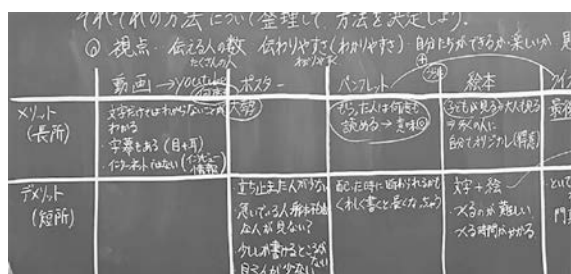 それぞれの方法について整理して、方法を決定しよう。
◎ 視点・伝える人の数 伝わりやすさ(わかりやすさ)・自分たちができるか・楽しいか
たくさんの人
動画 → YouTube
ポスター
パンフレット
絵本
クイズ
メリット
(長所)
文字だけではわからないことが
わかる
・字幕もある(目+耳)
・インターネットではない(インタビュー
情報)
大勢
もらった人は何度も
読める→意味◎
子どもが見る→大人も見る
自分でオリジナル
最後
デメリット
(短所)
・立ち止まる人が少ない
・急いでいる人
な人が見ない?
・少ししか書けるところが
ない
目立つ人が少ない
配った時に断わられるかも
くわしく書くと長くなっちゃう
文字+絵
・つくるのが難しい
・つくる時間がかかる